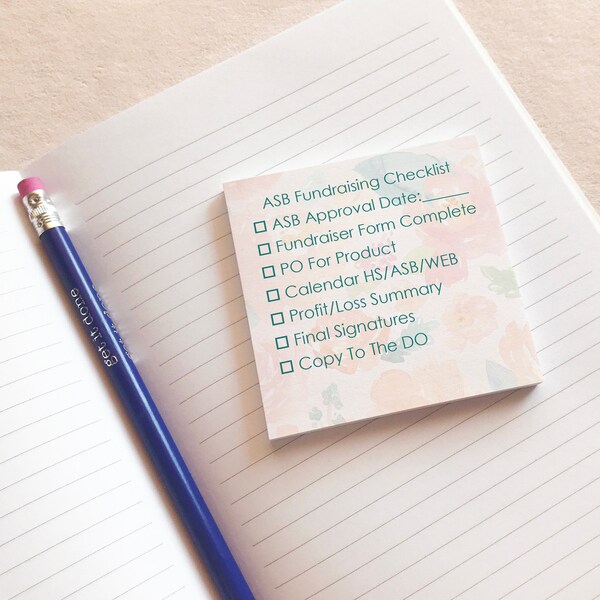 ASB Fundraising Checklist
☐ ASB Approval Date:_____
☐ Fundraiser Form Complete
☐ PO For Product
☐ Calendar HS/ASB/WEB
☐ Profit/Loss Summary
☐ Final Signatures
☐ Copy To The DO
get it done